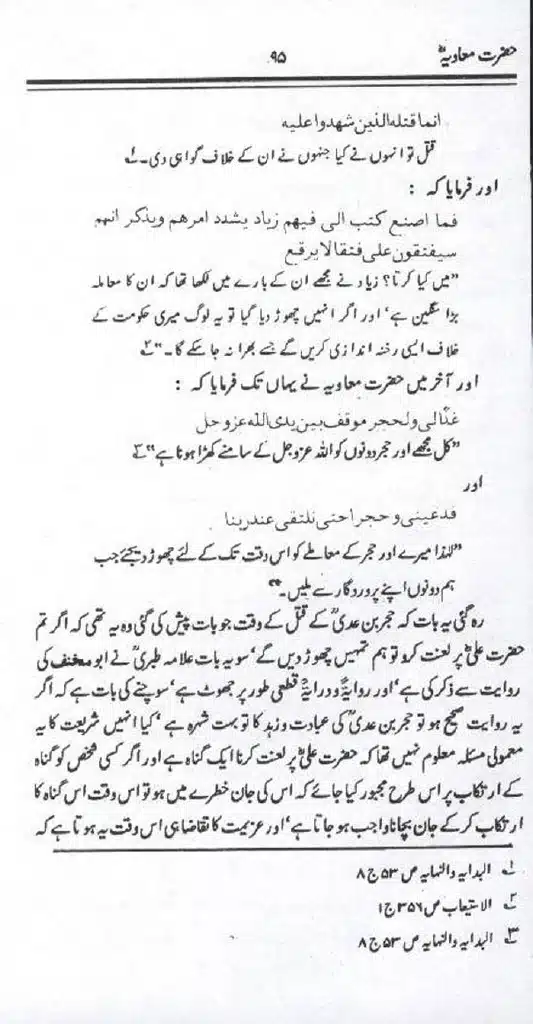 حضرت معاویہؓ
۹۵
انما قتله الذین شهدوا علیه
قتل تو انہوں نے کیا جنہوں نے ان کے خلاف گواہی دی۔ ۱؎
اور فرمایا کہ :
فما اصنع کتب الی فیهم زیاد یشدد امرهم ویذکر انهم
سیفتقون علی فتقا لا یرقع
”میں کیا کرتا؟ زیاد نے مجھے ان کے بارے میں لکھا تھا کہ ان کا معاملہ
بڑا سنگین ہے‘ اور اگر انہیں چھوڑ دیا گیا تو یہ لوگ میری حکومت کے
خلاف ایسی رخنہ اندازی کریں گے جسے بھرا نہ جا سکے گا۔“ ۲؎
اور آخر میں حضرت معاویہ نے یہاں تک فرمایا کہ :
غدالی ولحجر موقف بین یدی الله عزوجل
”کل مجھے اور حجر دونوں کو اللہ عزوجل کے سامنے کھڑا ہونا ہے“ ۳؎
اور
فدعینی وحجرا حتی نلتقی عند ربنا
”لہٰذا میرے اور حجر کے معاملے کو اس وقت تک کے لئے چھوڑ دیجئے جب
ہم دونوں اپنے پروردگار سے ملیں۔“
رہ گئی یہ بات کہ حجر بن عدیؓ کے قتل کے وقت جو بات پیش کی گئی وہ یہ تھی کہ اگر تم
حضرت علیؓ پر لعنت کرو تو ہم تمہیں چھوڑ دیں گے‘ سو یہ بات علامہ طبریؒ نے ابو مخنف کی
روایت سے ذکر کی ہے‘ اور روایةً و درایةً قطعی طور پر جھوٹ ہے‘ سوچنے کی بات ہے کہ اگر
یہ روایت صحیح ہو تو حجر بن عدیؓ کی عبادت و زہد کا تو بہت شہرہ ہے‘ کیا انہیں شریعت کا یہ
معمولی مسئلہ معلوم نہیں تھا کہ حضرت علیؓ پر لعنت کرنا ایک گناہ ہے اور اگر کسی شخص کو گناہ
کے ارتکاب پر اس طرح مجبور کیا جائے کہ اس کی جان خطرے میں ہو تو اس وقت اس گناہ کا
ارتکاب کر کے جان بچانا واجب ہو جاتا ہے‘ اور عزیمت کا تقاضا ہی اس وقت یہ ہوتا ہے کہ
۱؎ البدایہ والنہایہ ص ۵۳ ج ۸
۲؎ الاستیعاب ص ۳۵۶ ج ۱
۳؎ البدایہ والنہایہ ص ۵۳ ج ۸